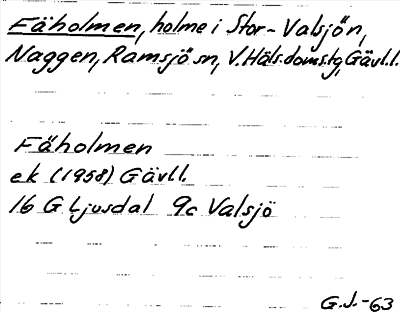 Fäholmen, holme i Stor-Valsjön,
Naggen, Ramsjö sn, V. Häls. doms.tg, Gävl.l.
Fäholmen
ek (1958) Gävll.
16 G Ljusdal 9c Valsjö
G.J.-63